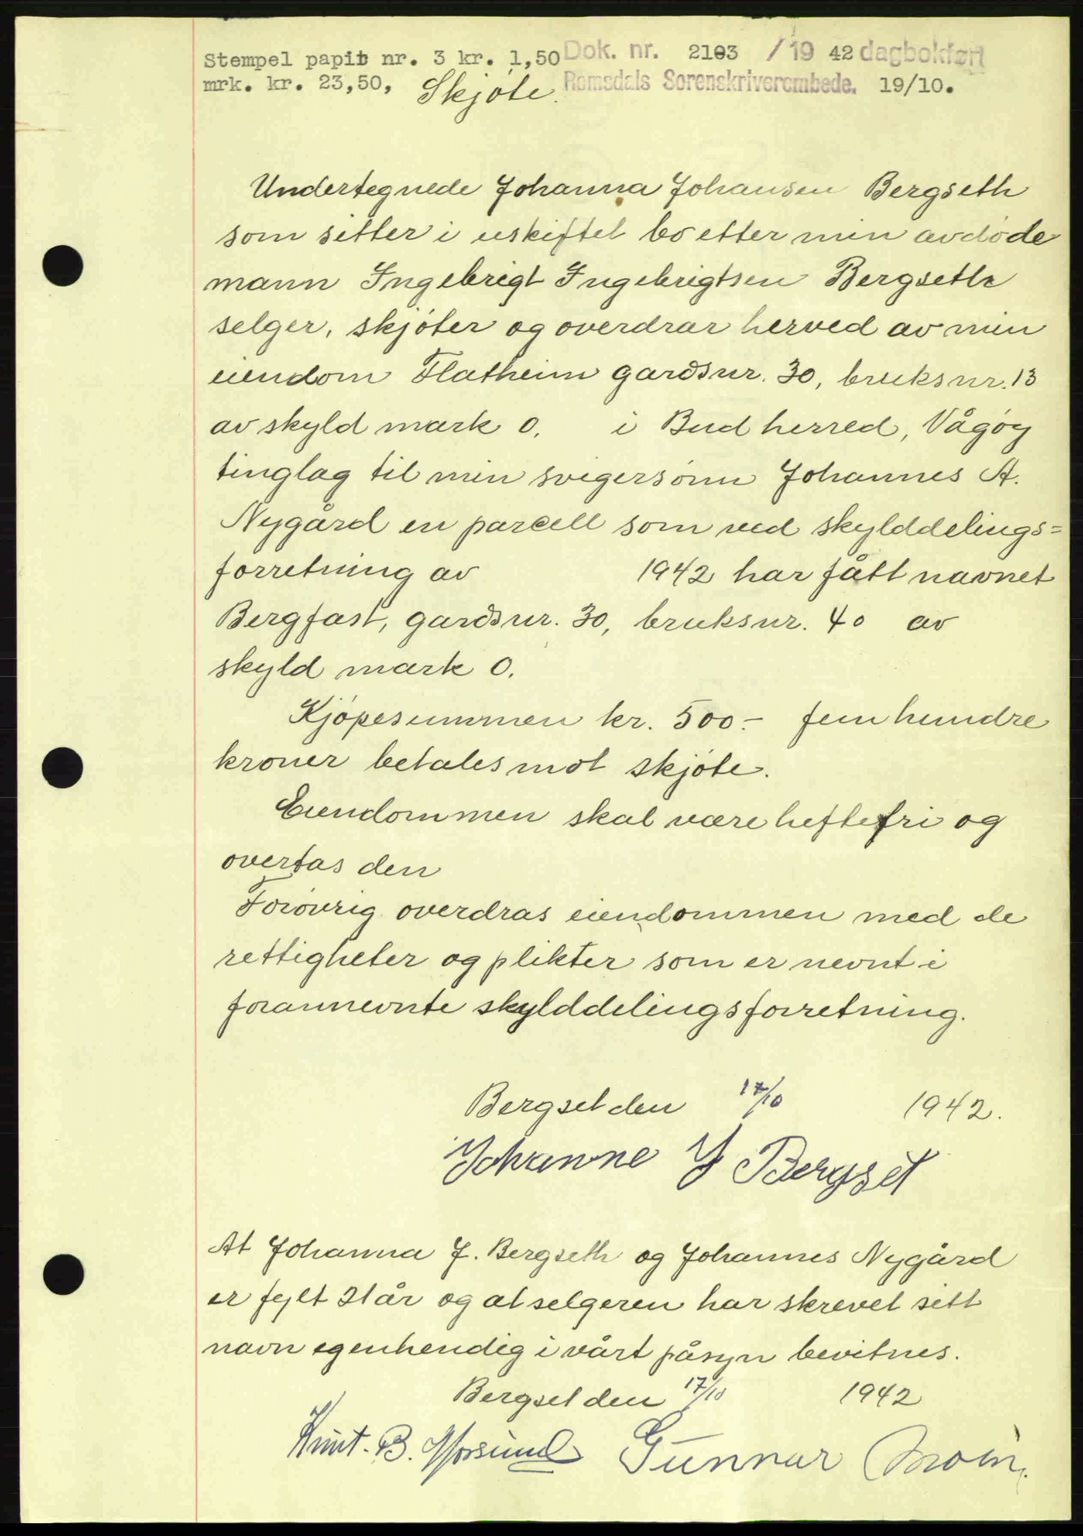 Stempel papir nr. 3 kr. 1,50 Dok. nr. 2103 / 19 42 dagbokført
mrk. kr. 23,50, Skjøte. Romsdals Sorenskriverembede. 19/10.
Undertegnede Johanna Johansen Bergseth
som sitter i uskiftet bo etter min avdøde
mann Ingebrigt Ingebrigtsen Bergseth
selger, skjøter og overdrar herved av min
eiendom Flatheim gardsnr. 30, bruksnr. 13
av skyld mark 0, i Bud herred, Vågøy
tinglag til min svigersønn Johannes A.
Nygård en parcell som ved skylddelings=
forretning av 1942 har fått navnet
Bergfast, gardsnr. 30, bruksnr. 40 av
skyld mark 0.
Kjøpesummen kr. 500.- fem hundre
kroner betales mot skjøte.
Eiendommen skal være heftefri og
overtas den
Forøvrig overdras eiendommen med de
rettigheter og plikter som er nevnt i
forannevnte skylddelingsforretning.
Bergset den 17/10 1942.
Johanne J Bergset
At Johanna J. Bergseth og Johannes Nygård
er fylt 21 år og at selgeren har skrevet sitt
navn egenhendig i vårt påsyn bevitnes.
Bergset den 17/10 1942
Knut. B. Gunnar